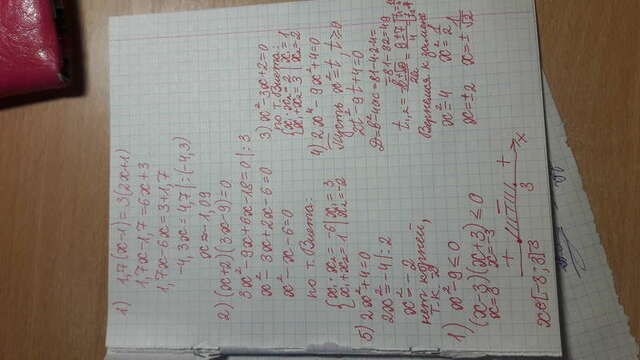 1) 1,7(x-1)=3(2x+1)
1,7x-1,7=6x+3
1,7x-6x=3+1,7
-4,3x=4,7|:(-4,3)
x≈-1,09
2) (x+2)(3x-9)=0
3x²-9x+6x-18=0|:3
x²-3x+2x-6=0
x²-x-6=0
по т. Виета:
{x₁·x₂=-6 | x₁=3
{x₁+x₂=1 | x₂=-2
3) x²-3x+2=0
по т. Виета:
{x₁·x₂=2 | x₁=1
{x₁+x₂=3 | x₂=2
4) 2x⁴-9x²+4=0
Пусть x²=t, t≥0
2t²-9t+4=0
D=b²-4ac=81-4·2·4=
=81-32=49
t₁,₂=(-b±√D)/2a=(9±7)/4=
Вернемся к замене
x²=4 x²=1/2
x=±2 x=±1/√2
5) 2x²+4=0
2x²=-4|:2
x²=-2
нет корней,
т.к. -2
1) x²-9≤0
(x-3)(x+3)≤0
x=3 x=-3
+ - +
-3 3 x
x∈[-3;3]